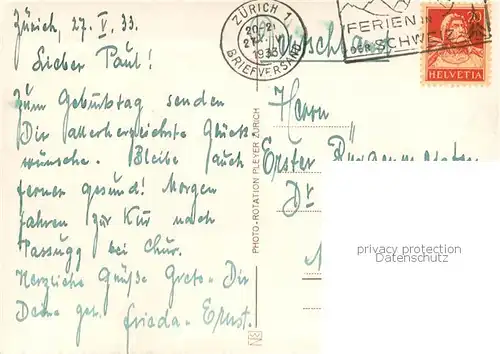 Zürich, 27. V. 33.
Lieber Paul!
Zum Geburtstag senden
Dir allerherzlichste Glück-
wünsche. Bleibe auch
ferner gesund! Morgen
fahren zur Kur nach
Passugg bei Chur.
Herzliche Grüße Grete - Dir
Deine get.
Frieda - Ernst.
PHOTO-ROTATION PLEYER ZÜRICH
ZÜRICH 1
20-21
1933
BRIEFVERSAND
FERIEN IN
DER SCHWEIZ
20
HELVETIA
Deutschland
Herrn
Erster Bürgermeister
Dr
privacy protection
Datenschutz